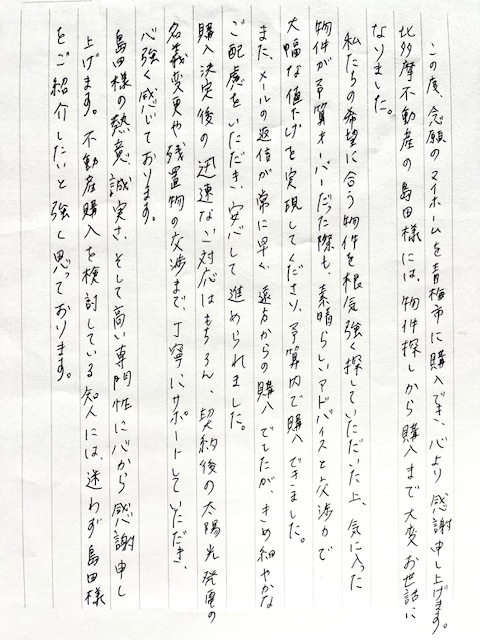 この度、念願のマイホームを青梅市に購入でき、心より感謝申し上げます。
北多摩不動産の島田様には、物件探しから購入まで大変お世話に
なりました。
私たちの希望に合う物件を根気強く探していただいた上、気に入った
物件が予算オーバーだった際も、素晴らしいアドバイスと交渉力で
大幅な値下げを実現してくださり、予算内で購入できました。
また、メールの返信が常に早く、遠方からの購入でしたが、きめ細やかな
ご配慮をいただき、安心して進められました。
購入決定後の迅速なご対応はもちろん、契約後の太陽光発電の
名義変更や残置物の交渉まで、丁寧にサポートしていただき、
心強く感じております。
島田様の熱意、誠実さ、そして高い専門性に心から感謝申し
上げます。不動産購入を検討している知人には、迷わず島田様
をご紹介したいと強く思っております。